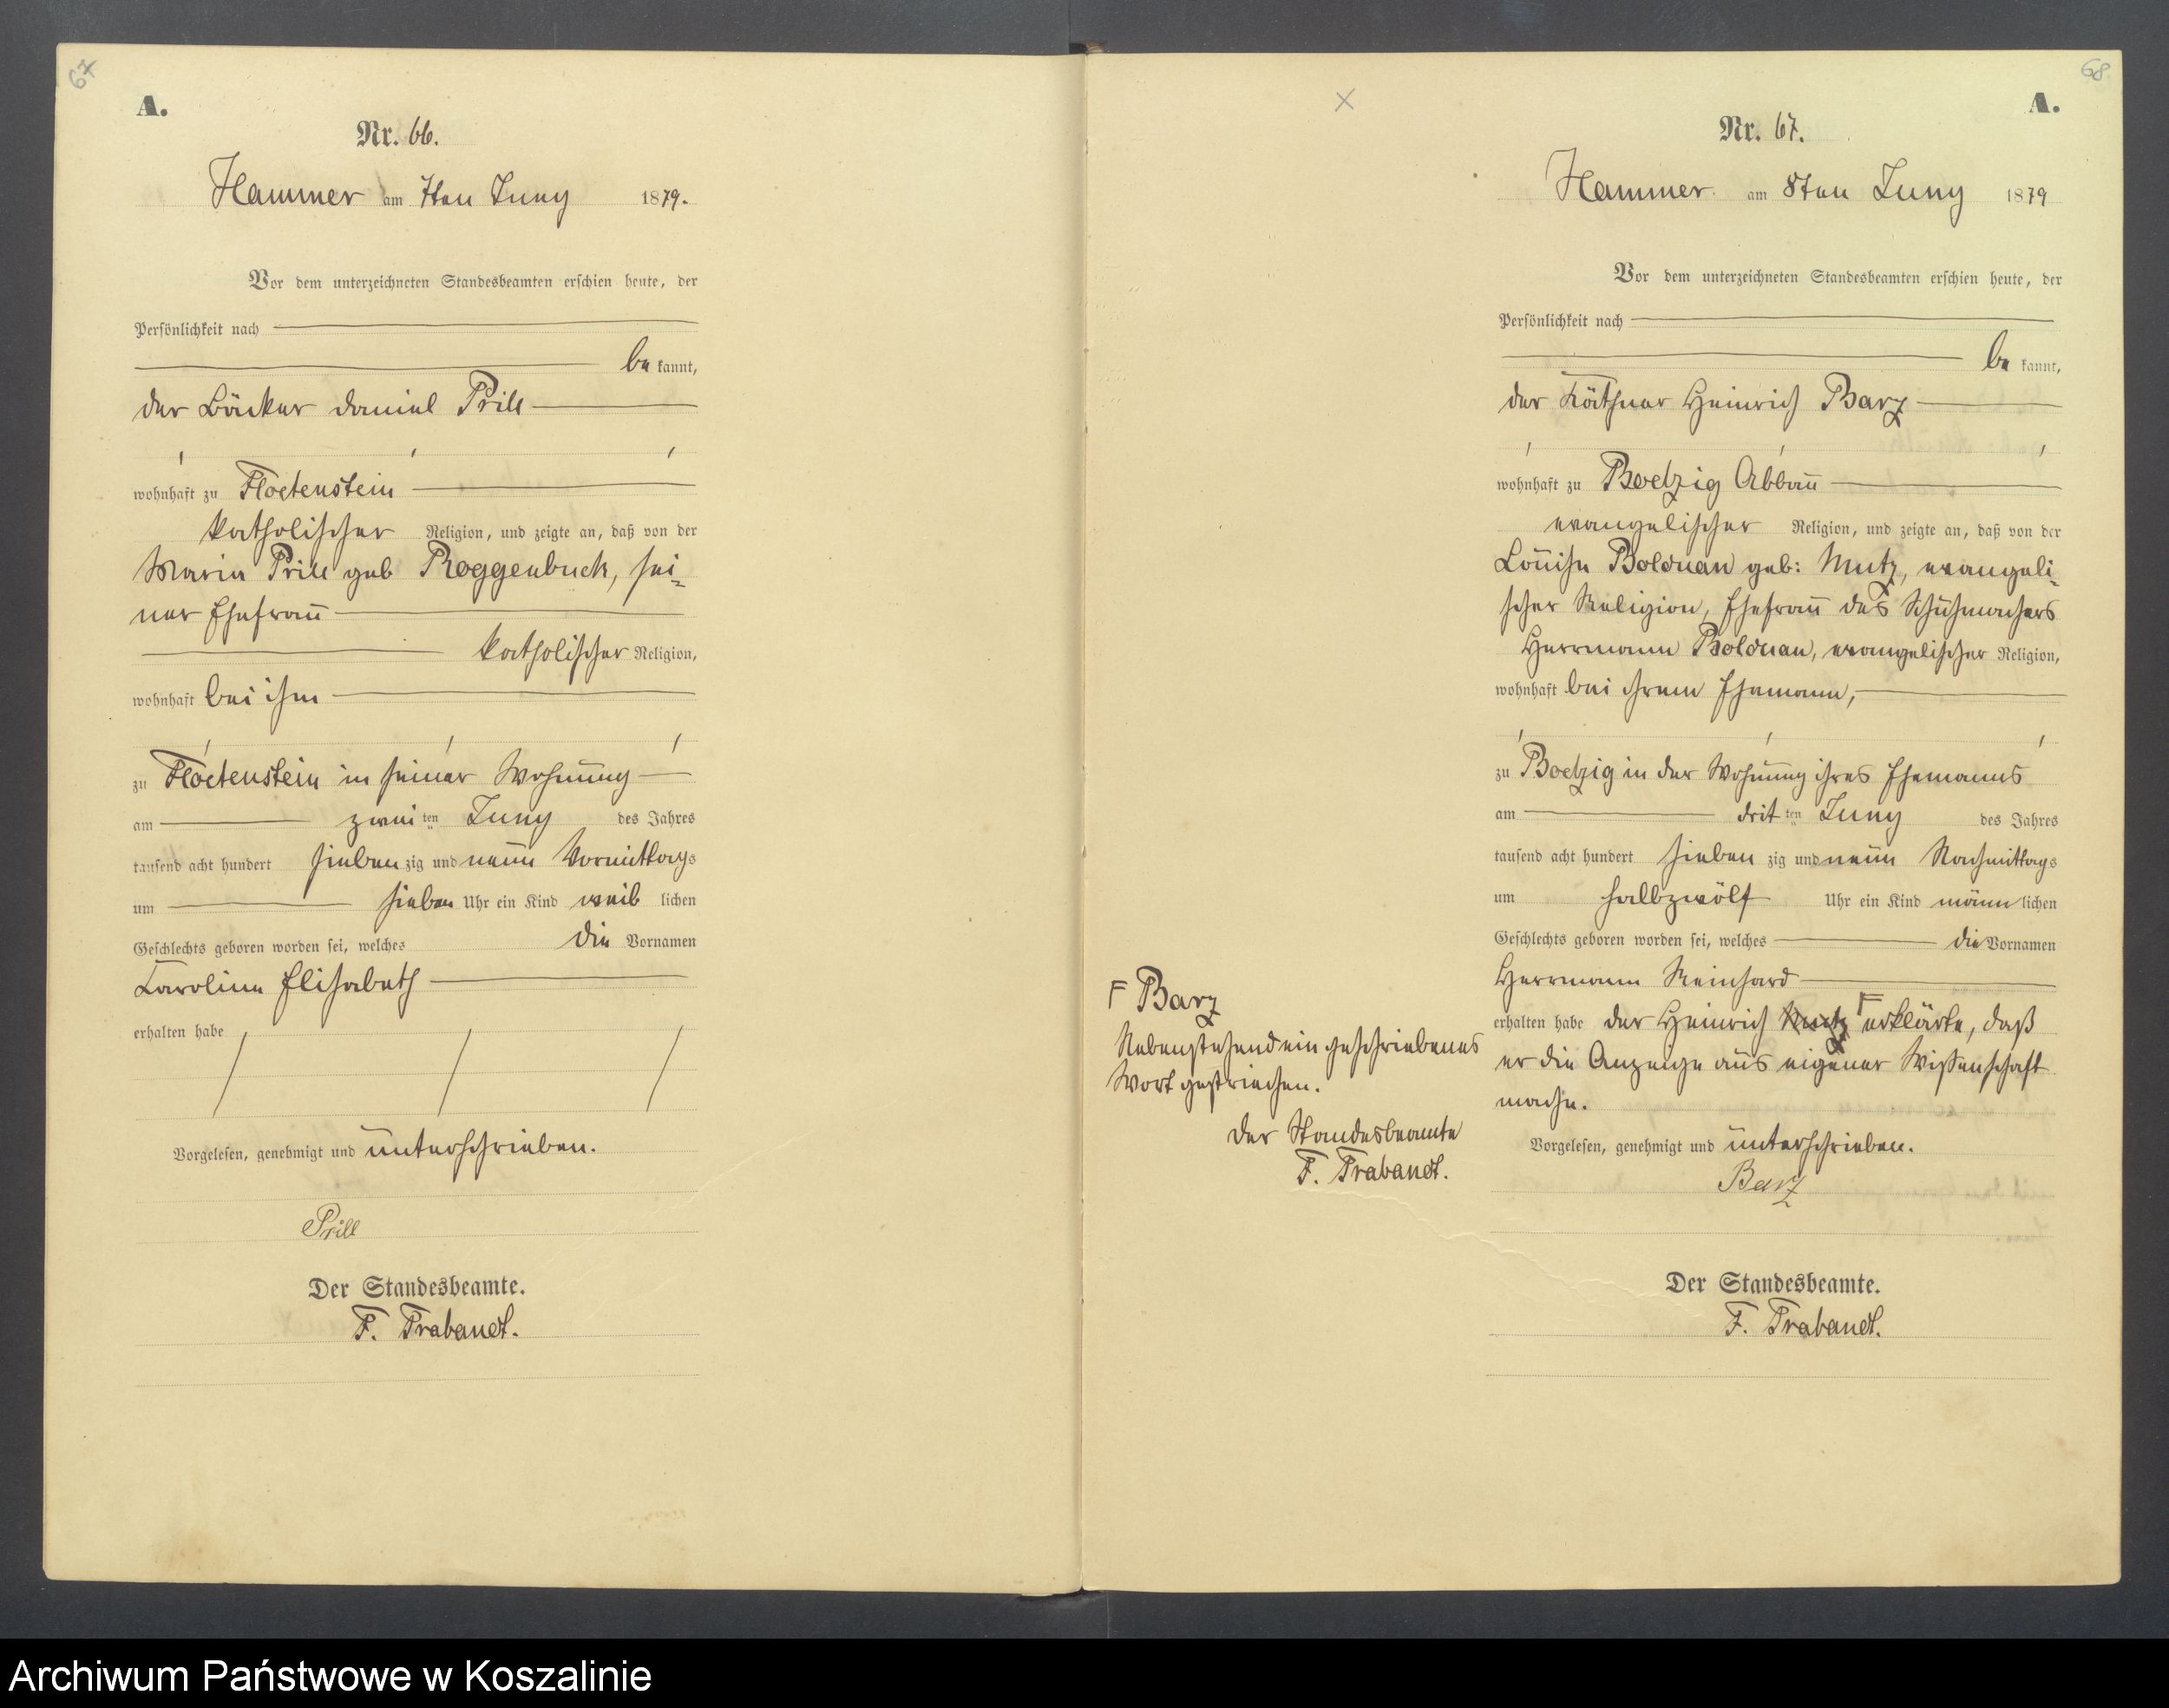 67
A.
Nr. 66.
Hammer am 7ten Juny 1879.
Vor dem unterzeichneten Standesbeamten erschien heute, der
Persönlichkeit nach
be kannt,
der Bäcker Daniel Prill
wohnhaft zu Floetenstein
katholischer Religion, und zeigte an, daß von der
Maria Prill geb Roggenbuck, sei-
ner Ehefrau
katholischer Religion,
wohnhaft bei ihm
zu Floetenstein in seiner Wohnung
am zwei ten Juny des Jahres
tausend acht hundert sieben zig und neun Vormittags
um sieben Uhr ein Kind weib lichen
Geschlechts geboren worden sei, welches die Vornamen
Caroline Elisabeth
erhalten habe
Vorgelesen, genehmigt und unterschrieben.
Prill
Der Standesbeamte.
F. Trabandt.
68
A.
Nr. 67.
Hammer am 8ten Juny 1879
Vor dem unterzeichneten Standesbeamten erschien heute, der
Persönlichkeit nach
be kannt,
der Käthner Heinrich Barz
wohnhaft zu Boetzig Abbau
evangelischer Religion, und zeigte an, daß von der
Louise Bolduan geb: Mutz, evangeli-
scher Religion, Ehefrau des Schuhmachers
Herrmann Bolduan, evangelischer Religion,
wohnhaft bei ihrem Ehemann,
zu Boetzig in der Wohnung ihres Ehemanns
am drit ten Juny des Jahres
tausend acht hundert sieben zig und neun Nachmittags
um halbzwölf Uhr ein Kind männ lichen
Geschlechts geboren worden sei, welches die Vornamen
Herrmann Reinhard
erhalten habe der Heinrich Mutz F erklärte, daß
er die Anzeige aus eigener Wissenschaft
mache.
Vorgelesen, genehmigt und unterschrieben.
Barz
Der Standesbeamte.
F. Trabandt.
F Barz
Nebenstehend ein geschriebenes
Wort gestrichen.
Der Standesbeamte
F. Trabandt.
Archiwum Państwowe w Koszalinie